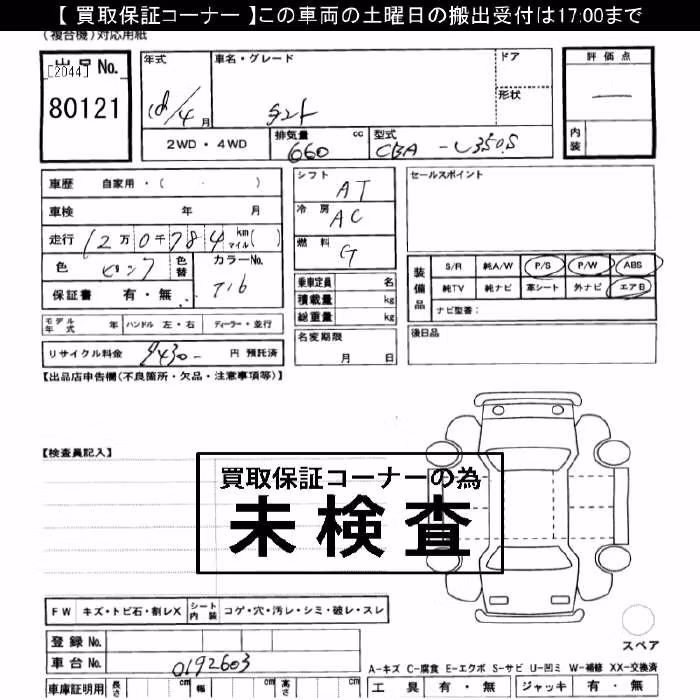 【 買取保証コーナー 】この車両の土曜日の搬出受付は17:00まで
(複合機)対応用紙
出品 No. [2044]
80121
年式
18/4 月
車名・グレード
タント
ドア
形状
評価点
—
内装
2WD・4WD
排気量 cc
660
型式
CBA - L350S
車歴 自家用・( ・ )
車検 年 月
走行 12万0千784 km マイル( )
色 ピンク 色替
カラーNo.
T16
保証書 有・無
シフト
AT
冷房
AC
燃料
G
乗車定員 名
積載量 kg
総重量 kg
セールスポイント
装備品
S/R 純A/W P/S P/W ABS
純TV 純ナビ 革シート 外ナビ エアB
ナビ型番:
モデル年式 年 ハンドル 左・右 ディーラー・並行
名変期限
月 日
後日品
リサイクル料金 9430- 円 預託済
【出品店申告欄(不良箇所・欠品・注意事項等)】
【検査員記入】
買取保証コーナーの為
未検査
FW キズ・トビ石・割レX シート内装 コゲ・穴・汚レ・シミ・破レ・スレ
登録 No.
車台 No. 0192603
スペア
A-キズ C-腐食 E-エクボ S-サビ U-凹ミ W-補修 XX-交換済
車庫証明用 長さ cm 幅 cm 高さ cm
工具 有・無 ジャッキ 有・無